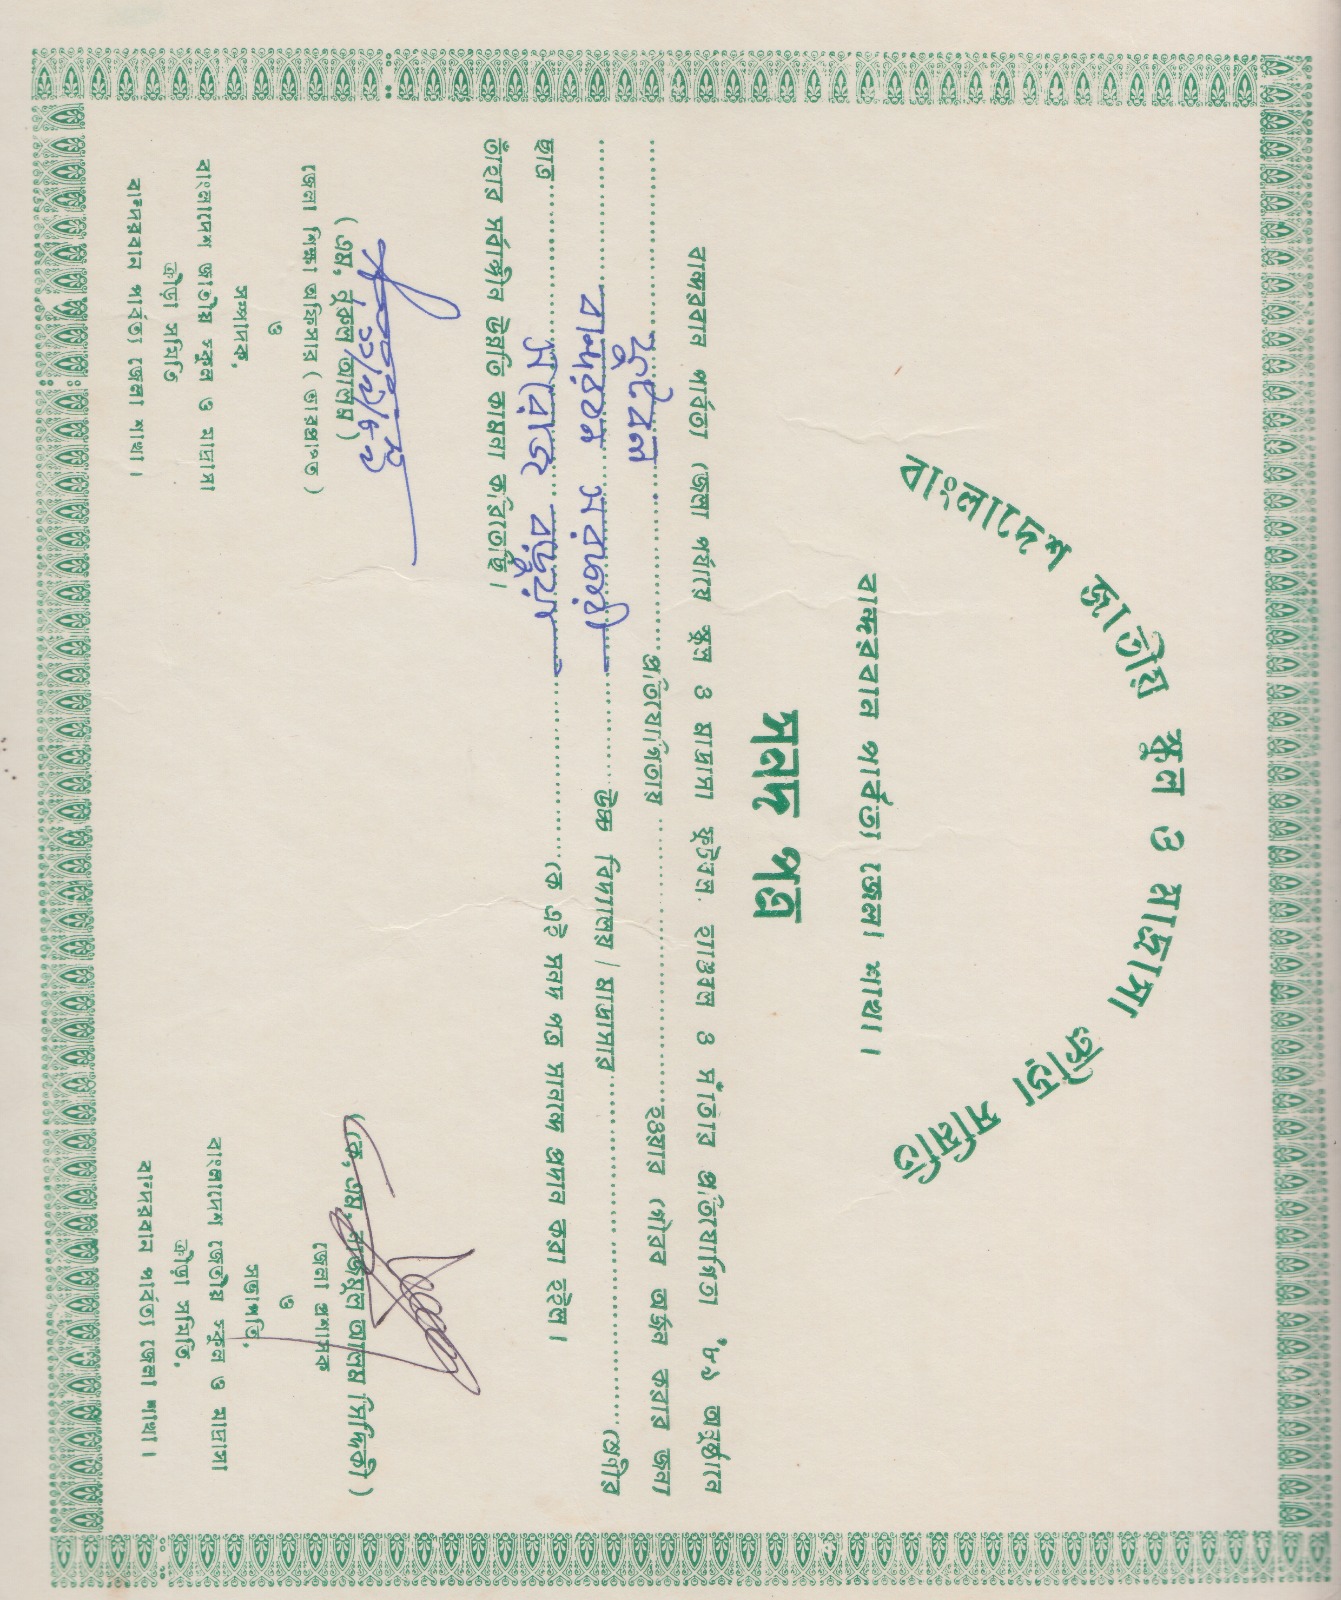 বাংলাদেশ জাতীয় স্কুল ও মাদ্রাসা ক্রীড়া সমিতি
বান্দরবান পার্বত্য জেলা শাখা।
সনদ পত্র
বান্দরবান পার্বত্য জেলা পর্যায়ে স্কুল ও মাদ্রাসা ফুটবল. হ্যাণ্ডবল ও সাঁতার প্রতিযোগিতা '৮৯ অনুষ্ঠানে
ফুটবল প্রতিযোগিতায় হওয়ার গৌরব অর্জন করার জন্য
বান্দরবান সরকারী উচ্চ বিদ্যালয় / মাদ্রাসার শ্রেণীর
ছাত্র সরোজ বড়ুয়া কে এই সনদ পত্র সানন্দে প্রদান করা হইল।
তাঁহার সর্বাঙ্গীন উন্নতি কামনা করিতেছি।
১১/৯/৮৯
( এম, নুরুল আলম )
জেলা শিক্ষা অফিসার ( ভারপ্রাপ্ত )
ও
সম্পাদক,
বাংলাদেশ জাতীয় স্কুল ও মাদ্রাসা
ক্রীড়া সমিতি
বান্দরবান পার্বত্য জেলা শাখা।
( কে, এম, নাজমুল আলম সিদ্দিকী )
জেলা প্রশাসক
ও
সভাপতি,
বাংলাদেশ জেতীয় স্কুল ও মাদ্রাসা
ক্রীড়া সমিতি,
বান্দরবান পার্বত্য জেলা শাখা।